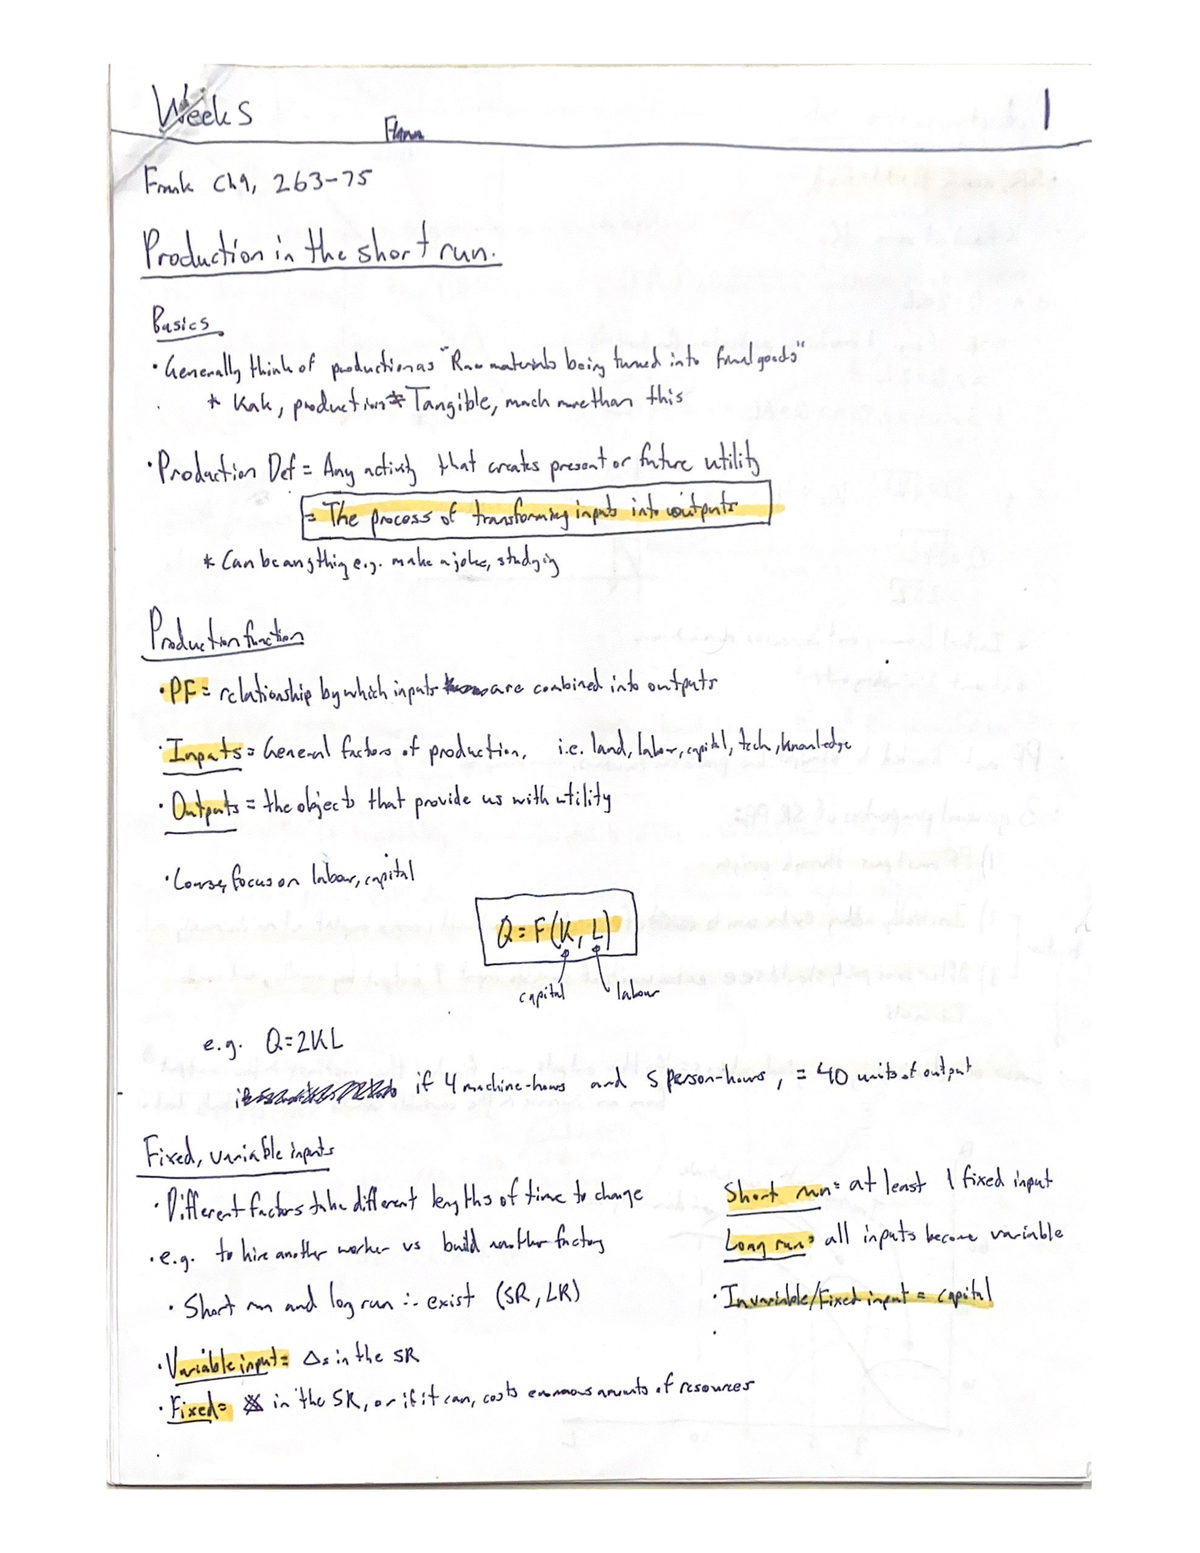 Week 5
1
Frank Ch9, 263-75
Production in the short run.
Basics
· Generally think of production as "Raw materials being turned into final goods"
* Kak, production ≠ Tangible, much more than this
· Production Def = Any activity that creates present or future utility
= The process of transforming inputs into outputs
* Can be anything e.g. make a joke, studying
Production function
· PF = relationship by which inputs are combined into outputs
· Inputs = General factors of production, i.e. land, labor, capital, tech, knowledge
· Outputs = the objects that provide us with utility
· Course, focus on labour, capital
Q = F(K, L)
capital labour
e.g. Q=2KL
if 4 machine-hours and 5 person-hours, = 40 units of output
Fixed, variable inputs
· Different factors take different lengths of time to change
· e.g. to hire another worker vs build another factory
· Short run and log run ∴ exist (SR, LR)
· Variable input = Δs in the SR
· Fixed = in the SR, or if it can, costs enormous amounts of resources
Short run = at least 1 fixed input
Long run = all inputs become variable
· Invariable/Fixed input = capital